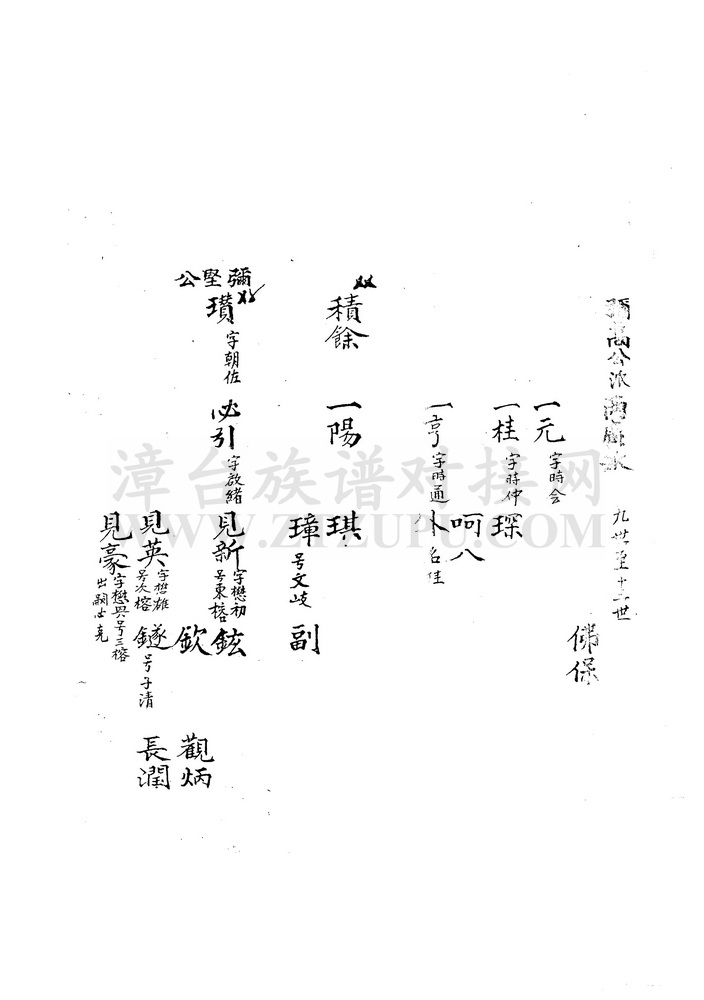 彌高公派
九世至十二世
佛保
一元 字時会
一桂 字時仲
琛
呵八
一亨 字時通
外 名佳
积餘
一陽
琪
璋 号文岐
副
彌堅公
瓚 字朝佐
必引 字啟緒
見新 字懋初 号東榕
鉉
欽
觀炳
見英 字懋雄 号次榕
鐩 号子清
長潤
見豪 字懋興号三榕
漳台族谱对接网
WWW.ZTZUPU.COM